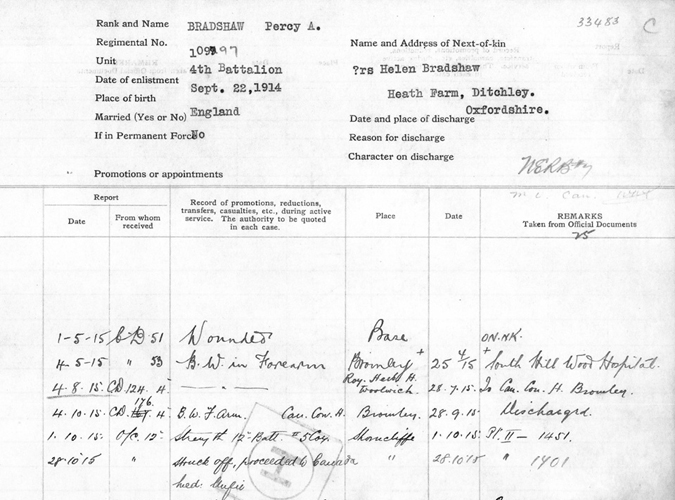 Rank and Name BRADSHAW Percy A. 33483 C
Regimental No.
Unit 4th Battalion
Name and Address of Next-of-kin
Date of enlistment Sept. 22,1914
?rs Helen Bradshaw
Place of birth England
Heath Farm, Ditchley.
Oxfordshire.
Married (Yes or No)
Date and place of discharge
If in Permanent Force No
Reason for discharge
Character on discharge
Promotions or appointments
Report
Date
From whom received
Record of promotions, reductions,
transfers, casualties, etc., during active
service. The authority to be quoted
in each case.
Place
Date
REMARKS
Taken from Official Documents
25
1-5-15 C.D. 51 Wounded Base
4-5-15 " 53 B.W. in Forearm Bromley 25 4/15 South Hill Wood Hospital.
4-8-15 CD 124. 4 — " — Roy. Herb. H. Woolwich. 28-7-15 To Can. Con. H. Bromley.
4.10.15 CD. 176. 4 B.W. F.Arm. Can. Con. H. Bromley. 28-9-15 Discharged.
1.10.15 O/c. 12 Strength 12 Batt. Shorncliffe 1.10.15 Pt. II — 1451.
28.10.15 " Struck off, proceeded to Canada " 28.10.15 " 1401